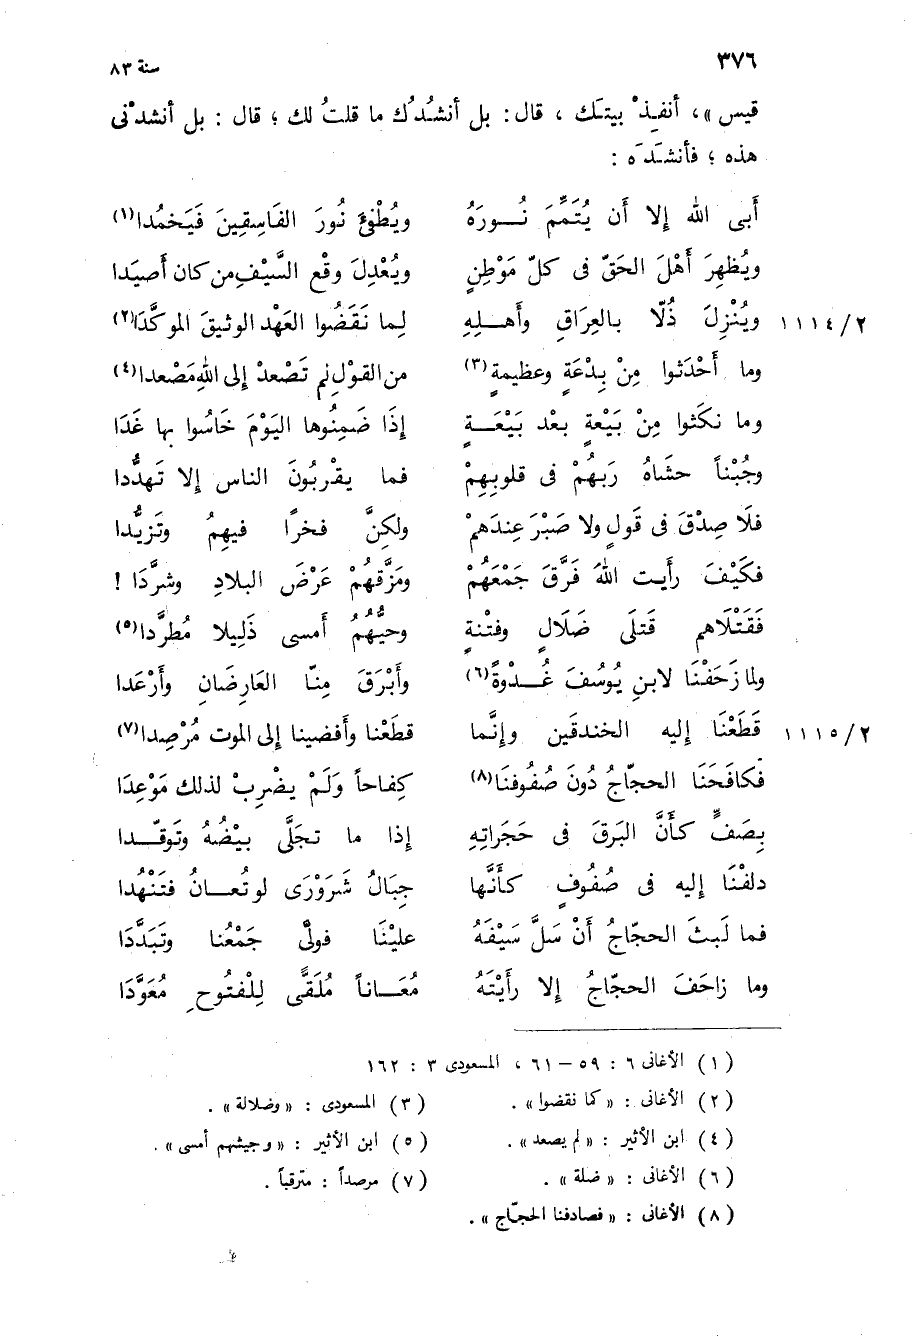 ٣٧٦ سنة ٨٣
قيس »، أنفِذْ بيتَك ، قال: بل أنشُدُك ما قلتُ لك ؛ قال : بل أنشدْنى
هذه ؛ فأنشَدَه :
أبى الله إلا أن يُتَمِّمَ نُـورَهُ ويُطْفِئَ نُورَ الفَاسِقِينَ فَيَخمُدا(١)
ويُظهِرَ أَهْلَ الحَقّ فى كلّ مَوْطِنٍ ويُعْدِلَ وقْع السَّيْفِ من كان أصيَدا
١١١٤/٢ ويُنْزِلَ ذُلّا بالعِرَاقِ وأهـلِهِ لِما نَقَضُوا العَهْد الوثيقَ الموكَّدَا(٢)
وما أَحْدَثوا مِنْ بِدْعَةٍ وعظيمةٍ(٣) من القوْلِ لم تَصْعدْ إلى اللهِ مَصْعدا(٤)
وما نكَثوا مِنْ بَيْعةٍ بعْد بَيْعَـةٍ إذَا ضَمِنُوها اليَوْمَ خَاسُوا بها غَدَا
وجُبْناً حشَاهُ رَبهُمْ فى قلوبِهِمْ فما يقْربُونَ الناس إلا تَهدُّدا
فلَا صِدْقَ فى قَولٍ ولا صَبْرَ عِندَهمْ ولكِنَّ فخرًا فيهِمُ وتَزيُّدا
فكَيْفَ رأَيت اللهَ فَرَّقَ جَمْعَهُمْ ومَزَّقهُمْ عَرْضَ البلادِ وشرَّدَا !
فَقَتْلَاهم قَتلَى ضَلَالٍ وفتْنةٍ وحيُّهُمُ أمسى ذَلِيلا مُطرَّدا(٥)
ولما زَحَفْنَا لابنِ يُوسُفَ غُـدْوةً(٦) وأَبْرَقَ مِنّا العَارِضَانِ وأَرْعَدا
١١١٥/٢ قَطَعْنَا إليه الخندقَين وإنَّما قطَعْنا وأفضينا إلى الموت مُرْصِدا(٧)
فكافَحَنَا الحجّاجُ دُونَ صُفُوفنَا(٨) كِفاحاً وَلَمْ يضْرِبْ لذلك مَوْعِدَا
بِصَفٍّ كأنَّ البَرقَ فى حَجَراتِهِ إذا ما تجَلَّى بيْضُهُ وتَوقَّـدا
دلفْنَا إليه فى صُفُوفٍ كأنَّها جِبَالُ شَرَوْرَى لو تُعـانُ فتَنْهُدا
فما لَبثَ الحجّاجُ أنْ سَلَّ سَيْفَهُ عليْنَا فولَّى جَمْعُنا وتَبَدَّدَا
وما زاحَفَ الحجّاجُ إلا رأَيْتَهُ مُعَـاناً مُلَقًّى لِلْفتُوحِ مُعَوَّدَا
(١) الأغانى ٦ : ٥٩ – ٦١ ، المسعودى ٣ : ١٦٢
(٢) الأغانى : « كما نقضوا » . (٣) المسعودى : « وضلالة » .
(٤) ابن الأثير : « لم يصعد » . (٥) ابن الأثير : « وجيشهم أمسى » .
(٦) الأغانى : « ضلة » . (٧) مرصداً : مترقباً .
(٨) الأغانى : « فصادفنا الحجّاج » .